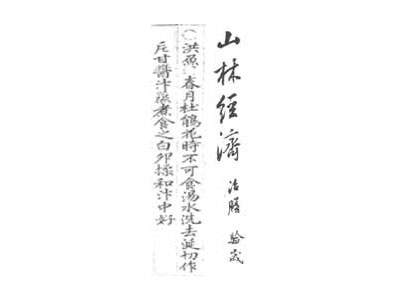 山林經濟 治膳
○洪魚 春月杜鵑花時不可食湯水洗去涎切作
片甘醬汁熟煮食之白卵揉和汁中好